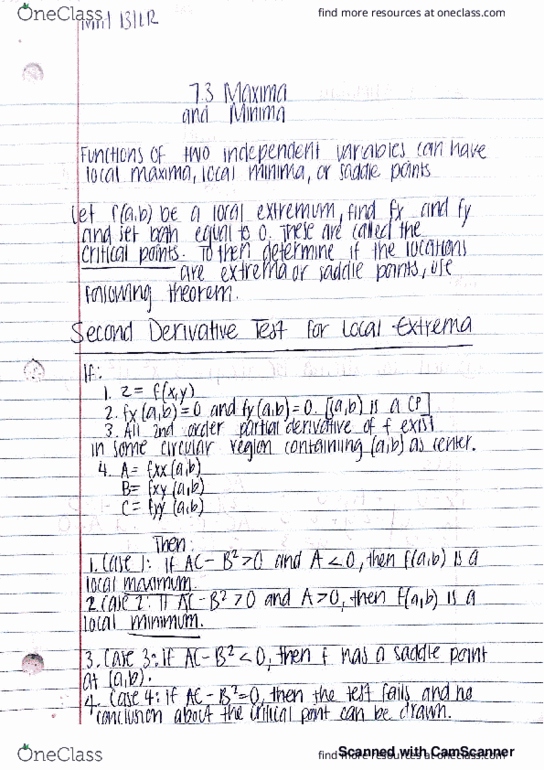 OneClass
find more resources at oneclass.com
7.3 Maxima
and Minima
Functions of two independent variables can have
local maxima, local minima, or saddle points
Let f(a,b) be a local extremum, find fx and fy
and set both equal to 0. These are called the
critical points. To then determine if the locations
are extrema or saddle points, use
following theorem.
Second Derivative Test for Local Extrema
If:
1. z = f(x,y)
2. fx(a,b)=0 and fy(a,b)=0. [(a,b) is a CP]
3. All 2nd order partial derivative of f exist
in some circular region containing (a,b) as center.
4. A = fxx(a,b)
B = fxy(a,b)
C = fyy(a,b)
Then:
1. Case 1: if AC-B²>0 and A<0, then f(a,b) is a
local maximum.
2. Case 2: if AC-B²>0 and A>0, then f(a,b) is a
local minimum.
3. Case 3: if AC-B²<0, then f has a saddle point
at (a,b).
4. Case 4: if AC-B²=0, then the test fails and no
conclusion about the critical point can be drawn.
OneClass
find more resources at oneclass.com
Scanned with CamScanner